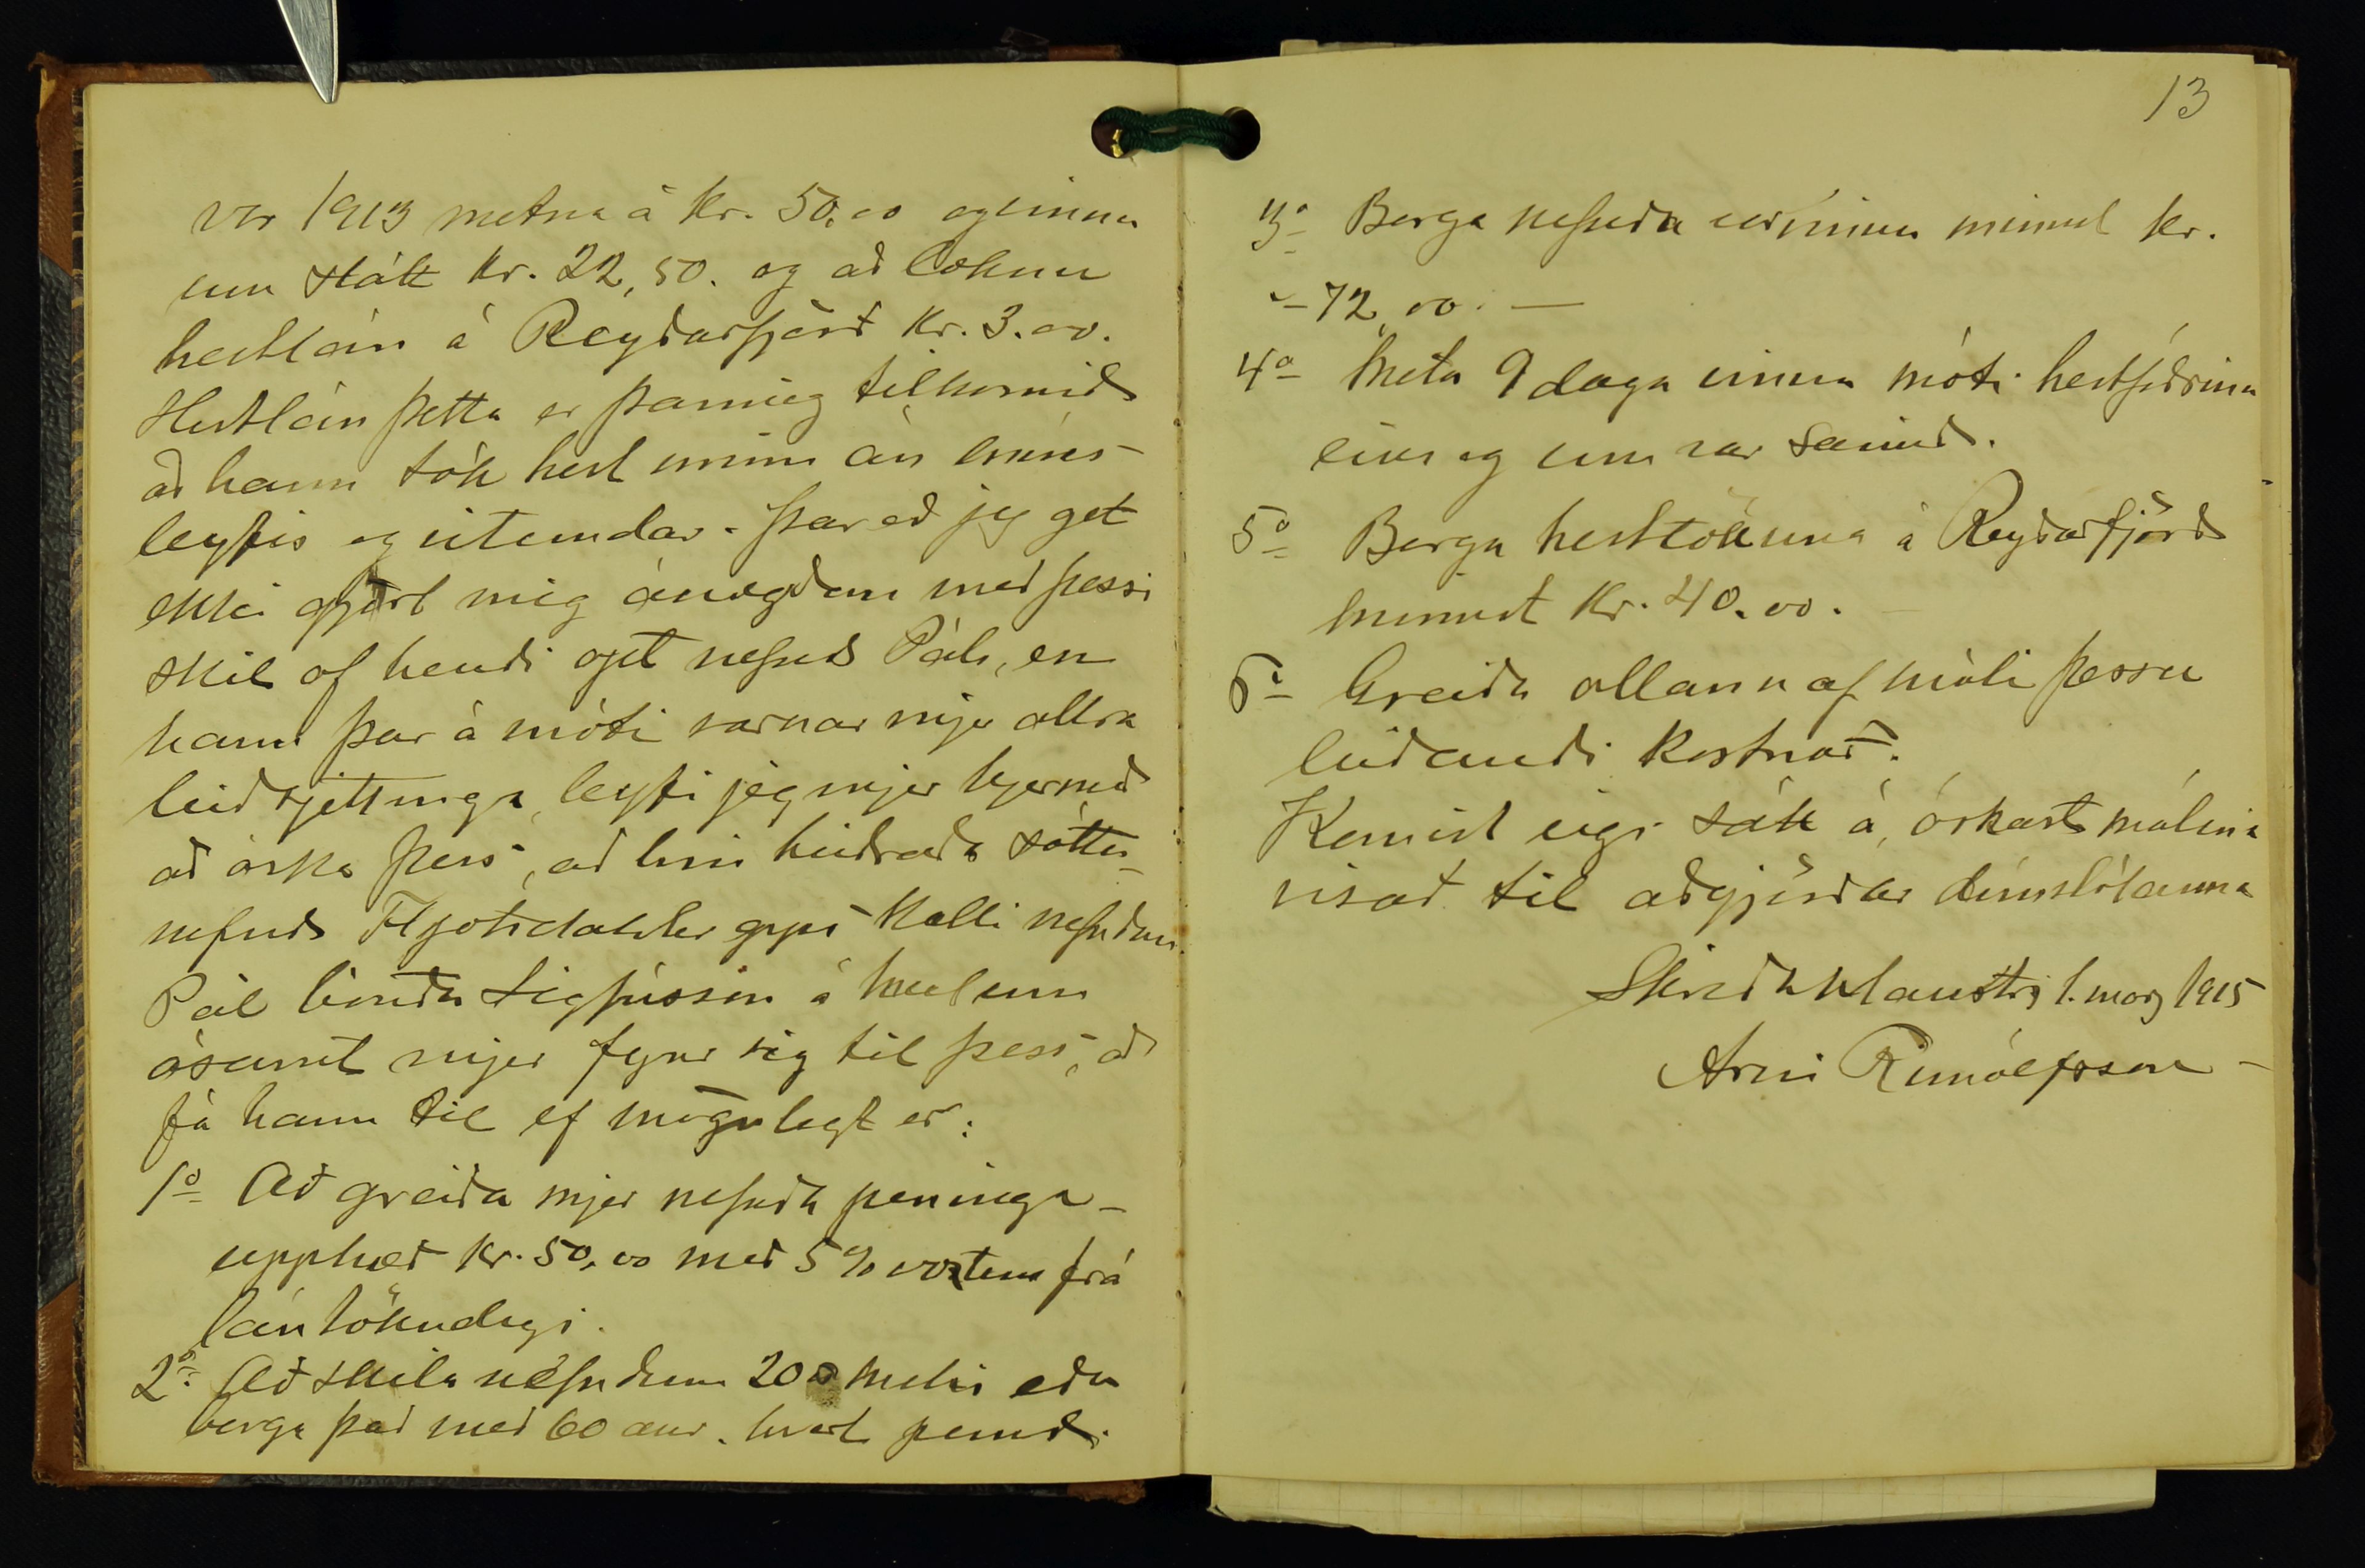 vor 1913 metna á kr. 50.00 og vinnu
um slátt kr. 22,50. og að lokum
hestlán á Reyðarfjörð kr. 3.00.
Hestlán þetta er þannig tilkomið
að hann tók hest minn án míns
leyfis og vitundar. Þar eð jeg get
ekki gjört mig ánægðan með þessi
skil af hendi opt nefnds Páls, en
hann þar á móti varnar mjer allra
leiðrjettinga, leyfi jeg mjer hjermeð
að óska þess, að hin heiðraða sátta-
nefnd Fljótsdælinga kalli nefndan
Pál bónda Sigfússon á Melum
ásamt mjer fyrir sig til þess, að
fá hann til ef mögulegt er:
1o Að greiða mjer nefnda peninga-
upphæð kr. 50,00 með 5% vöxtum frá
lántökudegi.
2o Að skila nefndum 200 melis eða
borga það með 60 aur. hvert pund.
13
3o Borga nefnda vorvinnu minnst kr.
- 72,00. —
4o Meta 9 daga vinnu móti hestfóðrinu
eins og um var samið.
5o Borga hesttökuna á Reyðarfjörð
minnst kr. 40.00.
6o Greiða allann af máli þessu
leiðandi kostnað.
Komist eigi sátt á, óskast málinu
vísað til aðgjörðar dómstólanna
Skriðuklaustri 1. marz 1915
Arni Runólfsson -